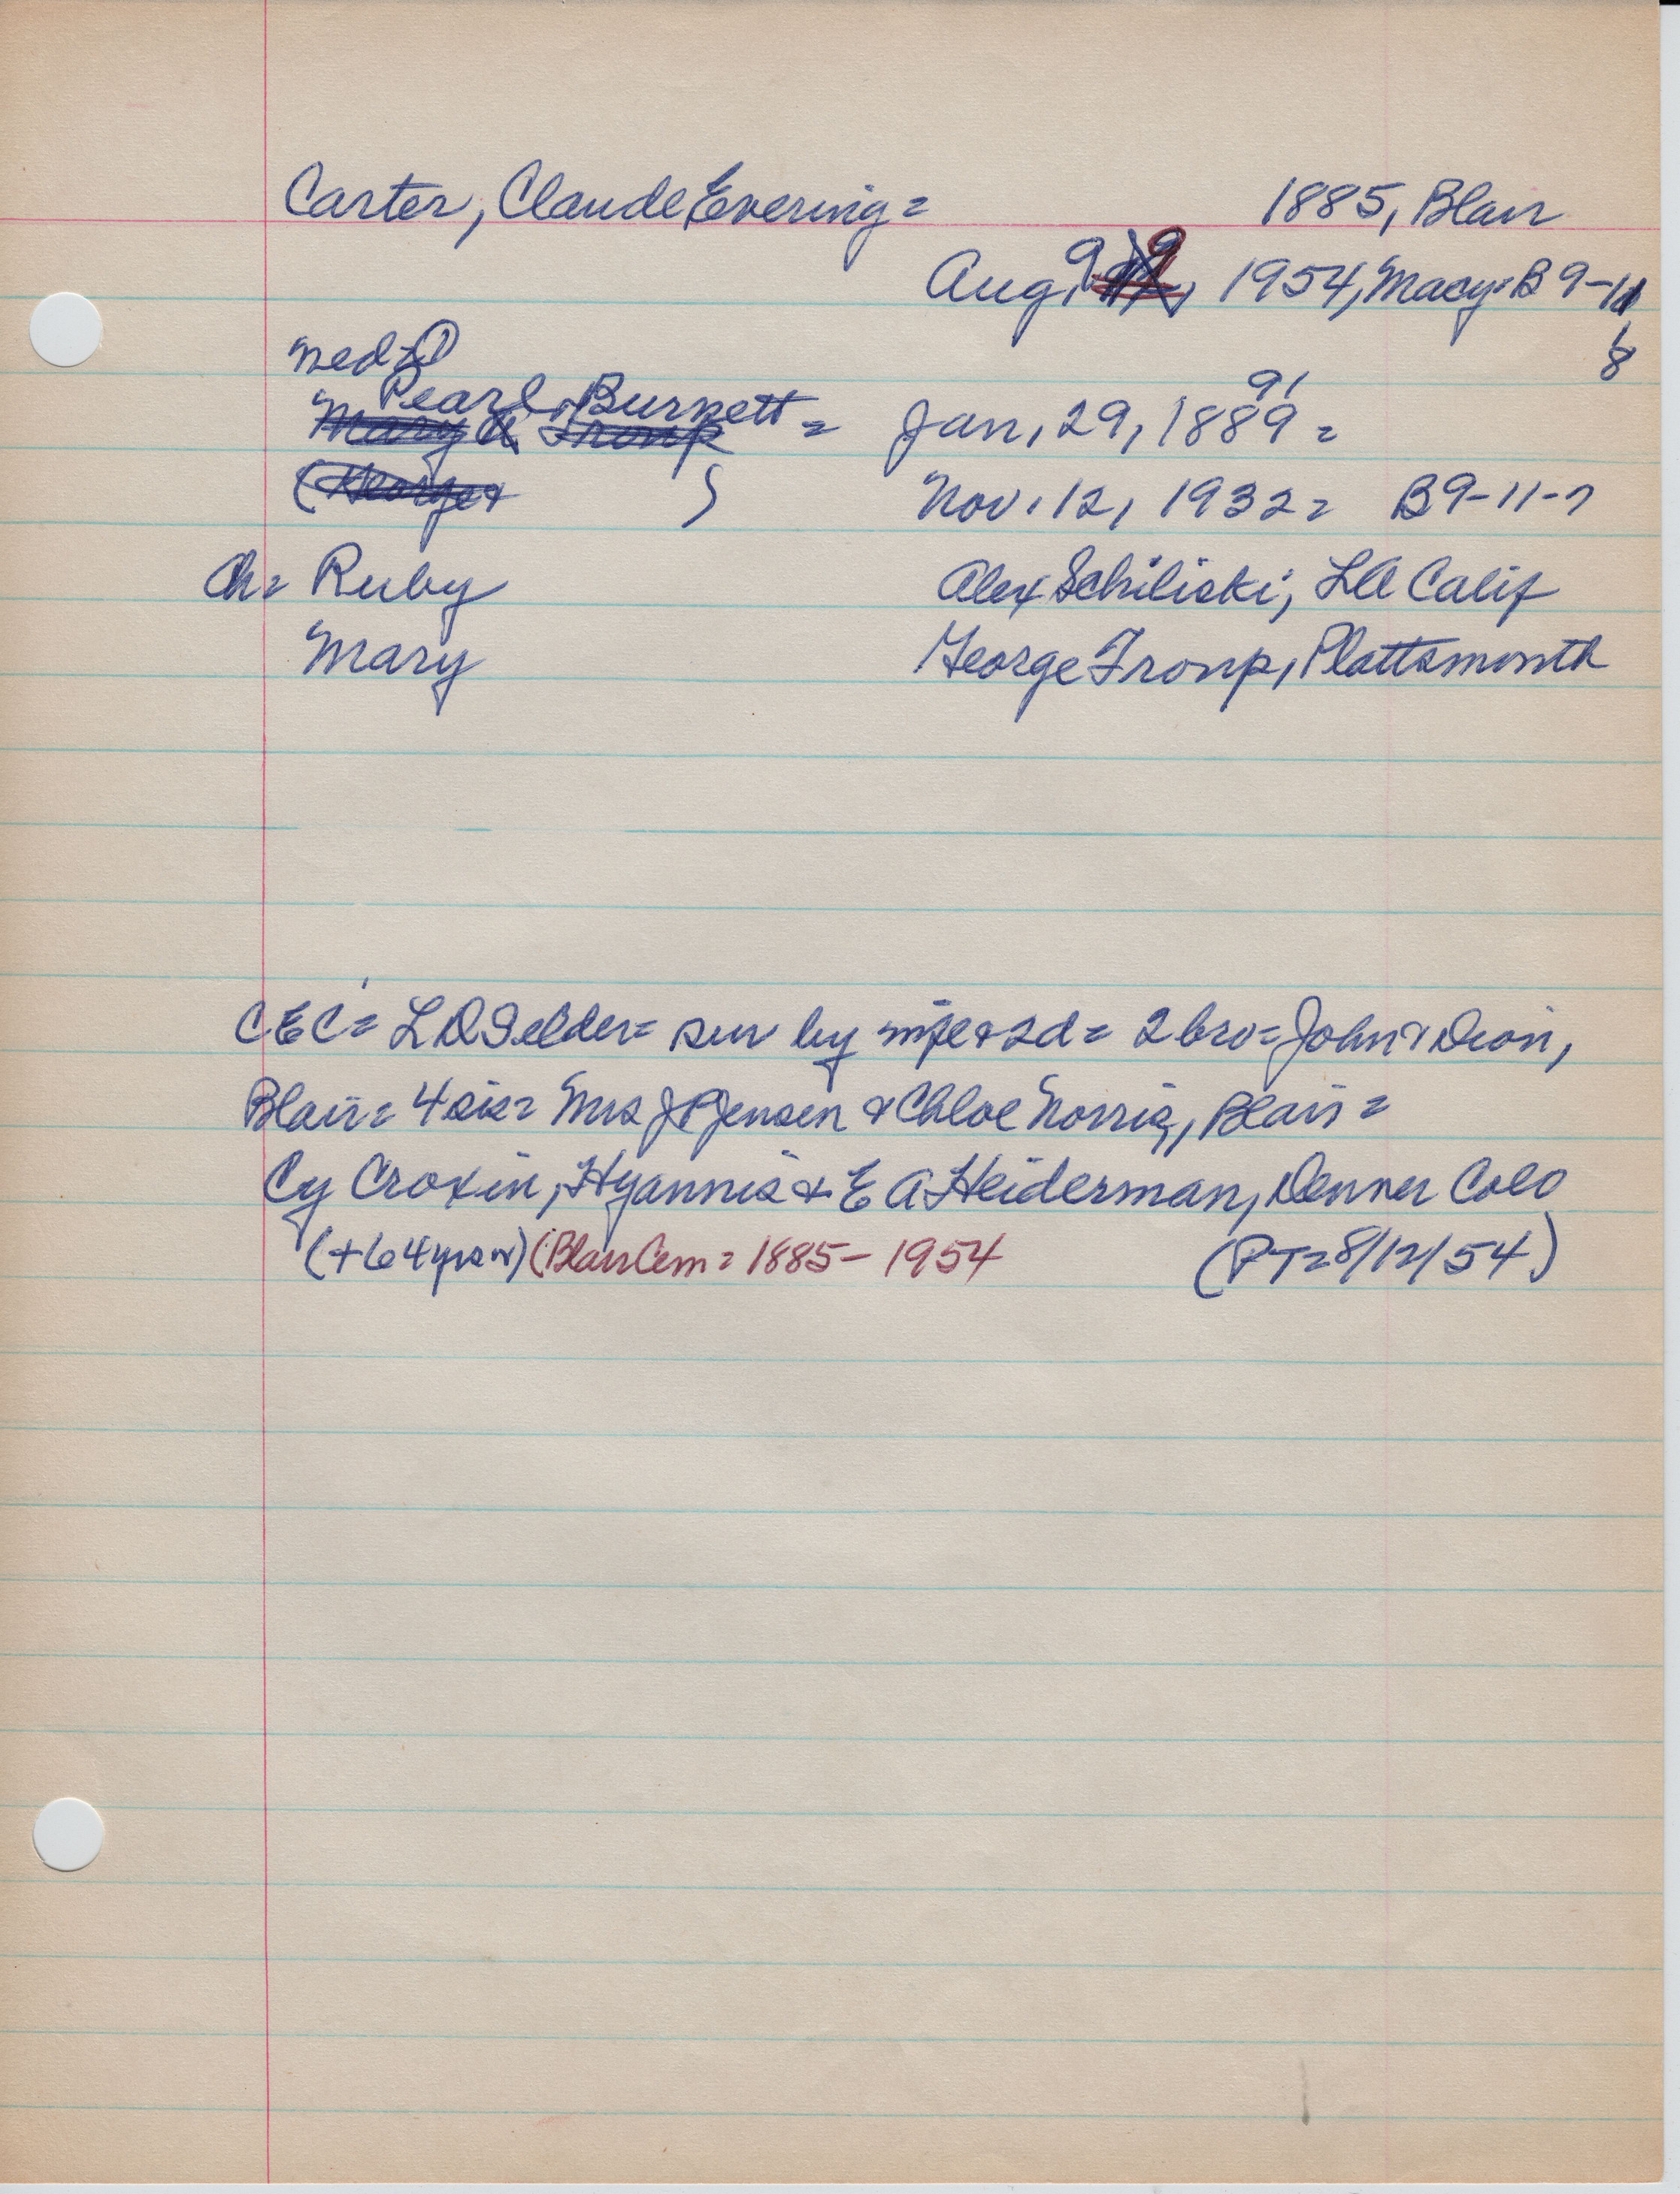 Carter, Claude Evering = 1885, Blair
Aug, 9, 1954, Macy = B 9-11
8
med = ①
Pearl Burkett = Jan, 29, 1889 =
91
Nov. 12, 1932 = B9-11-7
Ch = Ruby Alex Schiliski, LA Calif
Mary George Tromp, Plattsmouth
CEC = L D S elder = sur by wife + 2d = 2 bro = John + Dion,
Blair = 4 sis = Mrs J P Jensen + Chloe Norris, Blair =
Cy Croxin, Hyannis + E A Heiderman, Denver Colo
(+64 yrs) (Blair Cem = 1885 - 1954 (PT = 8/12/54)